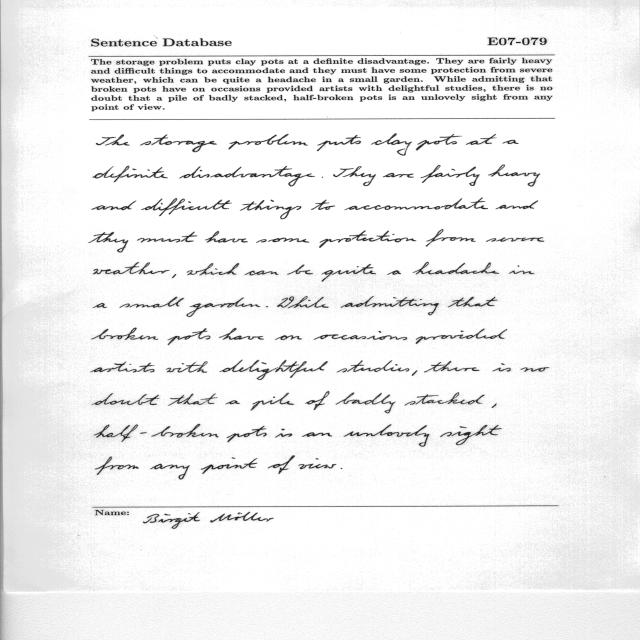 Sentence Database E07-079
The storage problem puts clay pots at a definite disadvantage. They are fairly heavy
and difficult things to accommodate and they must have some protection from severe
weather, which can be quite a headache in a small garden. While admitting that
broken pots have on occasions provided artists with delightful studies, there is no
doubt that a pile of badly stacked, half-broken pots is an unlovely sight from any
point of view.
The storage problem puts clay pots at a
definite disadvantage. They are fairly heavy
and difficult things to accommodate and
they must have some protection from severe
weather, which can be quite a headache in
a small garden. While admitting that
broken pots have on occasions provided
artists with delightful studies, there is no
doubt that a pile of badly stacked,
half-broken pots is an unlovely sight
from any point of view.
Name: Birgit Möller